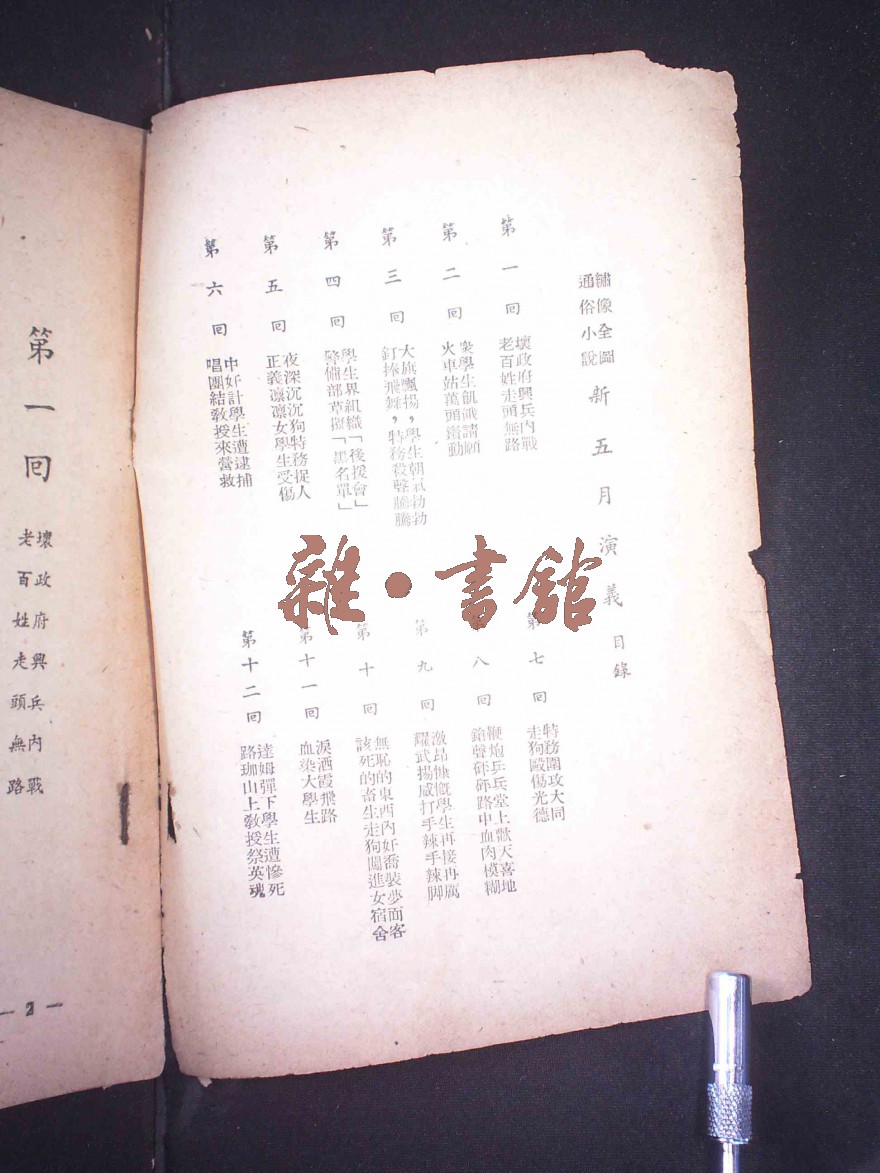 繡像全圖
通俗小說
新五月演義 目錄
第一回
壞政府興兵內戰
老百姓走頭無路
第二回
衆學生飢餓請願
火車站萬頭鑽動
第三回
大旗飄揚，學生朝氣勃勃
釘捧飛舞，特務殺聲騰騰
第四回
學生界組織「後援會」
警備部草擬「黑名單」
第五回
夜深沉沉狗特務捉人
正義凛凛女學生受傷
第六回
中奸計學生遭逮捕
唱團結敎授來營救
第七回
特務圍攻大同
走狗毆傷光德
第八回
鞭炮乒乓堂上歡天喜地
鎗聲砰砰路中血肉模糊
第九回
激昂慷慨學生再接再厲
耀武揚威打手辣手辣脚
第十回
無恥的東西內奸喬裝夢面客
該死的畜生走狗闖進女宿舍
第十一回
淚洒霞飛路
血染大學生
第十二回
達姆彈下學生遭慘死
路珈山上敎授祭英魂
雜·書館
第一回
壞政府興兵內戰
老百姓走頭無路
— 2 —